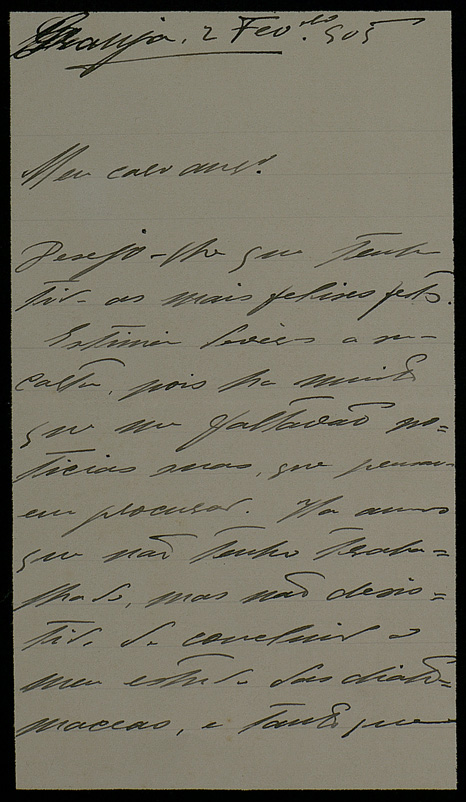 Granja, 2 Fevro. 905
Meu caro amº.
Desejo-lhe que tenha
tido as mais felises festas.
Estimei deveras a sua
carta, pois ha muito
que me faltavão no=
ticias suas, que pensava
em procurar. Ha annos
que não tenho traba=
lhado, mas não desis=
tido de concluir o
meu estudo das diato=
maceas, e tanto que